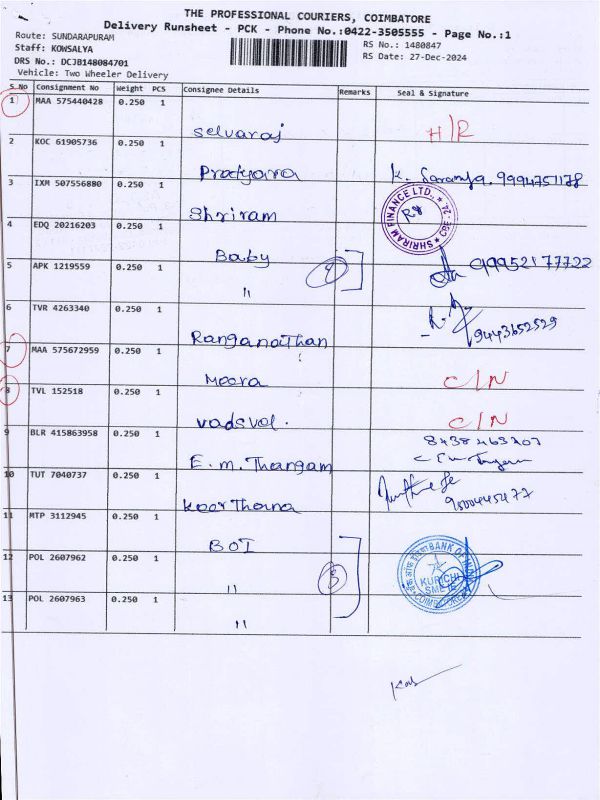 THE PROFESSIONAL COURIERS, COIMBATORE
Delivery Runsheet - PCK - Phone No.:0422-3505555 - Page No.:1
Route: SUNDARAPURAM
RS No.: 1480847
Staff: KOWSALYA
RS Date: 27-Dec-2024
DRS No.: DCJB148084701
Vehicle: Two Wheeler Delivery
S No Consignment No Weight PCS Consignee Details Remarks Seal & Signature
1 MAA 575440428 0.250 1 Selvaraj H/R
2 KOC 61905736 0.250 1 K. Saranya. 9994751178
3 IXM 507556880 0.250 1 Shriram SHRIRAM FINANCE LTD.,
4 EDQ 20216203 0.250 1 Baby
5 APK 1219559 0.250 1 " 9995217722
6 TVR 4263340 0.250 1 Ranganathan 9443652529
7 MAA 575672959 0.250 1 Meera C/N
8 TVL 152518 0.250 1 C/N
9 BLR 415863958 0.250 1 E.m. Thangam
10 TUT 7040737 0.250 1 Keerthana
11 MTP 3112945 0.250 1 BOI
12 POL 2607962 0.250 1 " 3 BANK OF INDIA KURICHI SME
13 POL 2607963 0.250 1 "